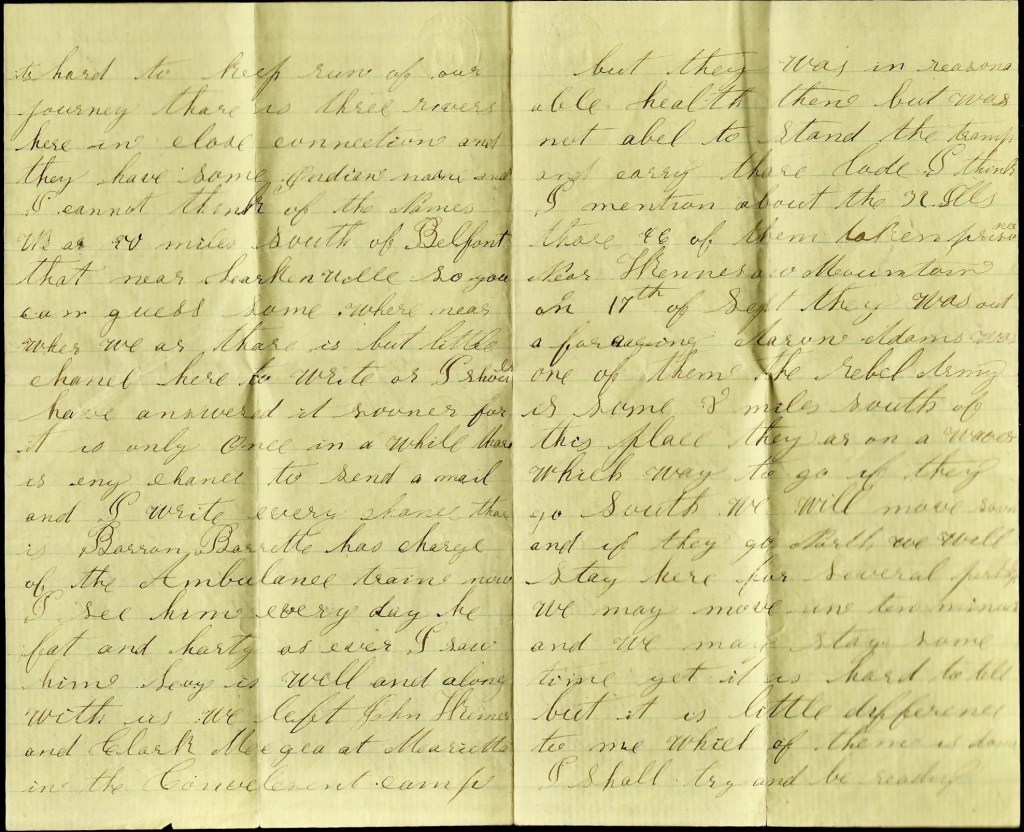 to hard to keep run of our
journey thare is three rivers
here in close connection and
they have some Indian name and
I cannot think of the Names
We ar 20 miles South of Belfont
that near Larkenville so you
can guess some where near
wher we ar thare is but little
chanel here to write or I should
have answered it sooner for
it is only once in a while thare
is eny chanel to send a mail
and I write every thare
is Barron Barrette has charge
of the Ambulance train now
I see him every day he
fat and harty as ever I saw
him Levy is well and along
with us we left John
and Clark at Marietta
in the Convelesent camp
but they was in reason
able health then but was
not abel to stand the tramp
and carry thare lode I think
I mention about the 32 Ills
thare 46 of them taken prisoners
Near Kennesaw Mountain
on 17th of Sept they was out
a foraging Aaron Adams was
one of them the rebel Army
is some 8 miles south of
this place they ar on a waver
which way to go if they
go South we will move soon
and if they go North we will
stay here for several
we may move in ten minuts
and we may stay some
time yet it is hard to tell
but it is little difference
to me whiel of them is done
I shall try and be ready